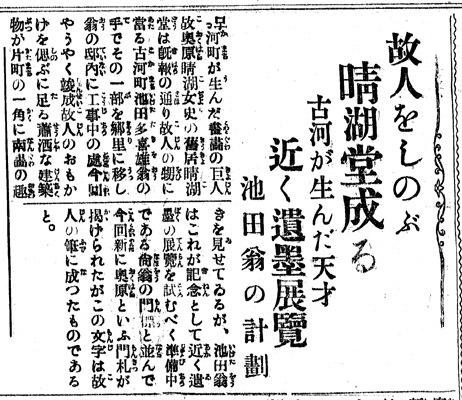 故人をしのぶ
晴湖堂成る
古河が生んだ天才
近く遺墨展覽
池田翁の計劃
古河町が生んだ畫壇の巨人
故奥原晴湖女史の舊居晴湖
堂は既報の通り故人の甥に
當る古河町池田多喜雄翁の
手でその一部を郷里に移し
翁の邸內に工事中の處今囘
やうやく竣成故人のおもか
げを偲ぶに足る瀟洒な建築
物が片町の一角に南畵の趣
きを見せてゐるが、池田翁
はこれが記念として近く遺
墨の展覽を試むべく準備中
である尙翁の門標と並んで
今囘新に奥原といふ門札が
揭げられたがこの文字は故
人の筆に成つたものである
と。